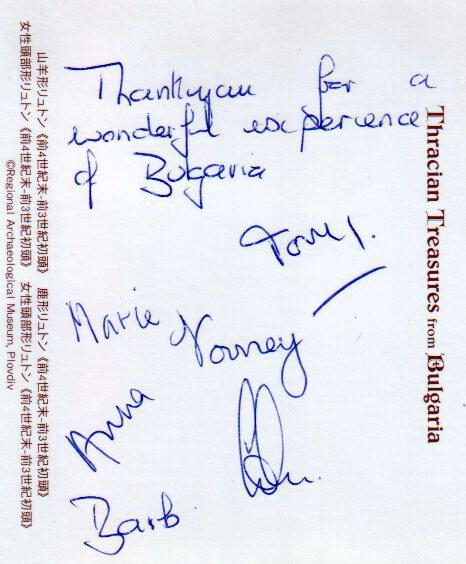 Thankyou for a
wonderful experience
of Bulgaria
Marie
Anna
Barb.
Thracian Treasures from Bulgaria
山羊形リュトン《前4世紀末-前3世紀初頭》 鹿形リュトン《前4世紀末-前3世紀初頭》
女性頭部形リュトン《前4世紀末-前3世紀初頭》 女性頭部形リュトン《前4世紀末-前3世紀初頭》
©Regional Archaeological Museum, Plovdiv